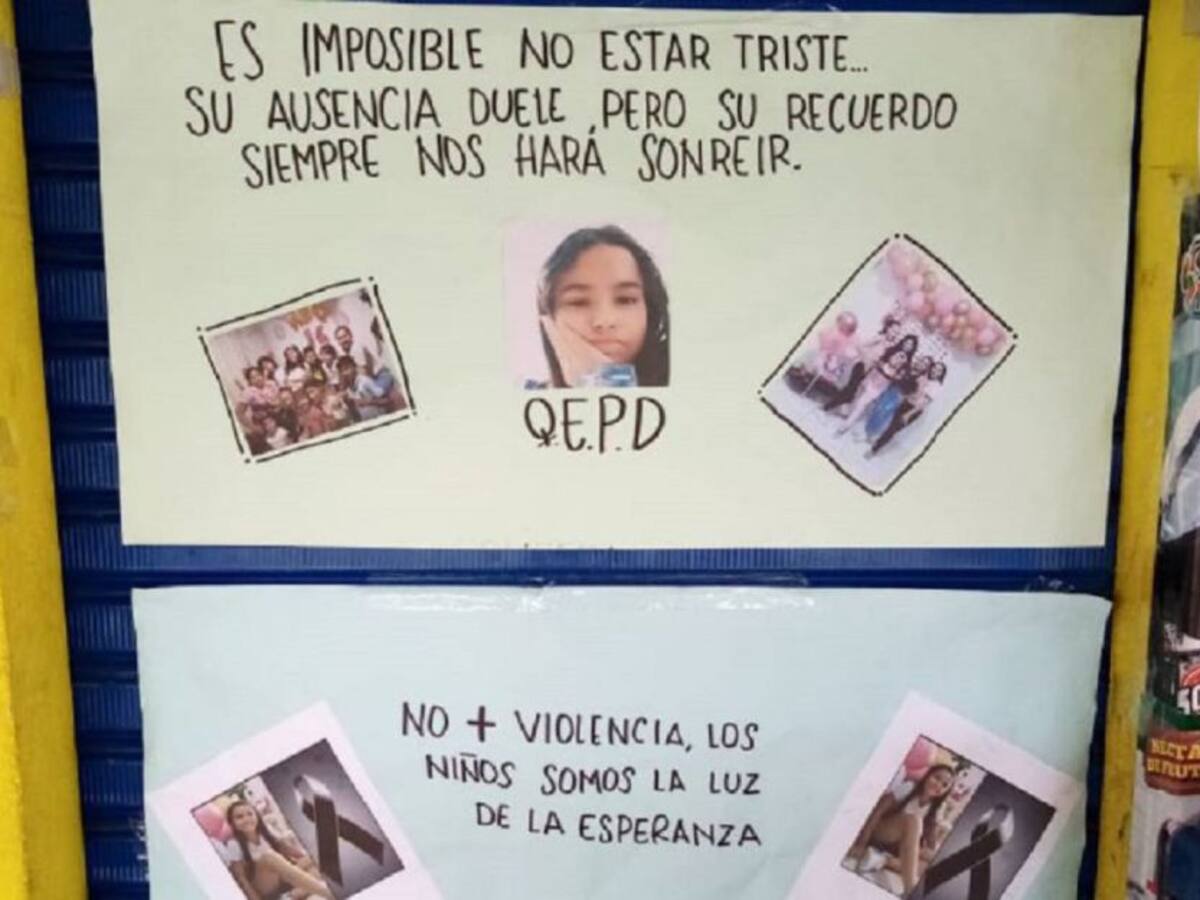 ES IMPOSIBLE NO ESTAR TRISTE...
SU AUSENCIA DUELE, PERO SU RECUERDO
SIEMPRE NOS HARÁ SONREIR.
Q.E.P.D
NO + VIOLENCIA, LOS
NIÑOS SOMOS LA LUZ
DE LA ESPERANZA